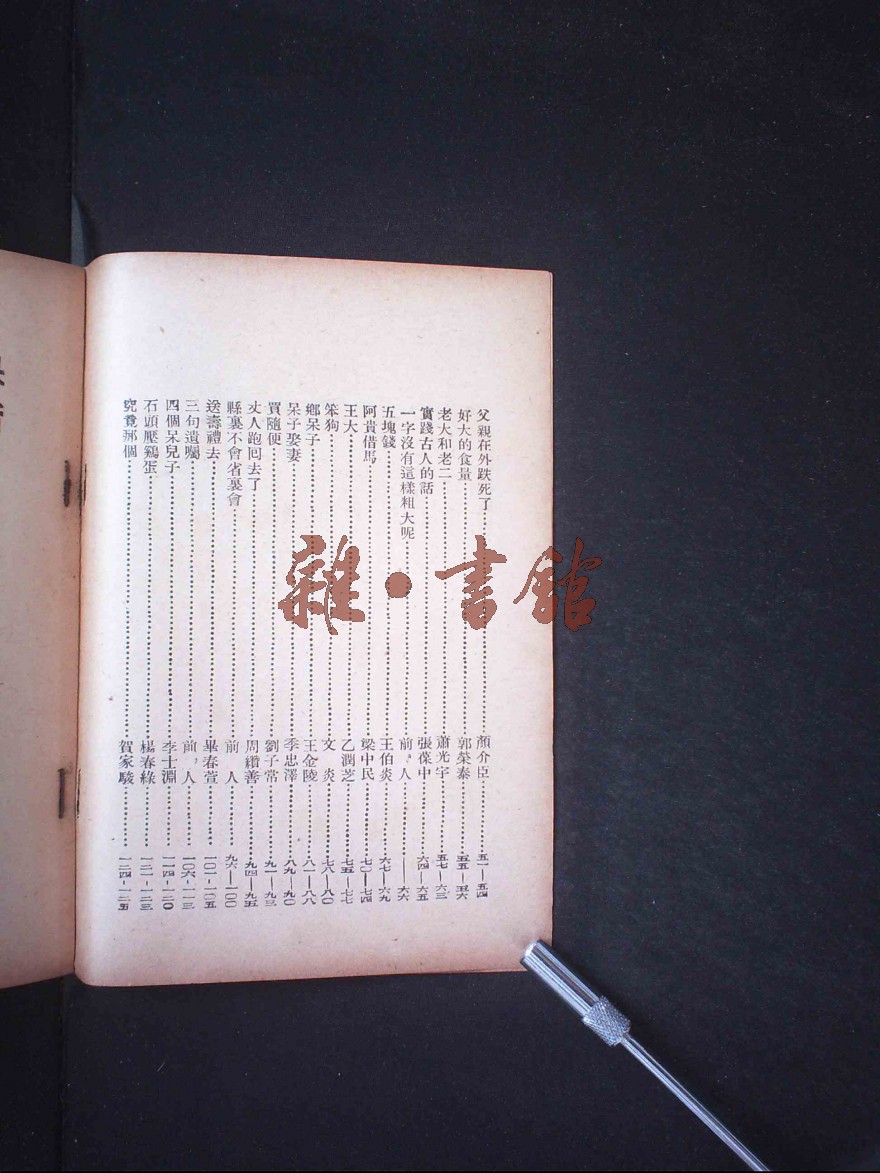 父親在外跌死了………顏介臣………五一—五四
好大的食量………郭榮泰………五五—五六
老大和老二………蕭光宇………五七—六三
實踐古人的話………張葆中………六四—六五
一字沒有這樣粗大呢………前　人————六六
五塊錢………王伯炎………六七—六九
阿貴借馬………梁中民………七〇—七四
王大………乙潤芝………七五—七七
笨狗………文　炎………七八—八〇
鄉呆子………王金陵………八一—八八
呆子娶妻………季忠澤………八九—九〇
買隨便………劉子常………九一—九三
丈人跑回去了………周纘善………九四—九五
縣裏不會省裏會………前　人………九六—一〇〇
送壽禮去………畢春萱………一〇一-一〇五
三句遺囑………前　人………一〇六-一一三
四個呆兒子………李士淵………一一四-一二〇
石頭壓鷄蛋………楊春綠………一二一-一二三
究竟那個………賀家駿………一二四-一二五
雜·書館